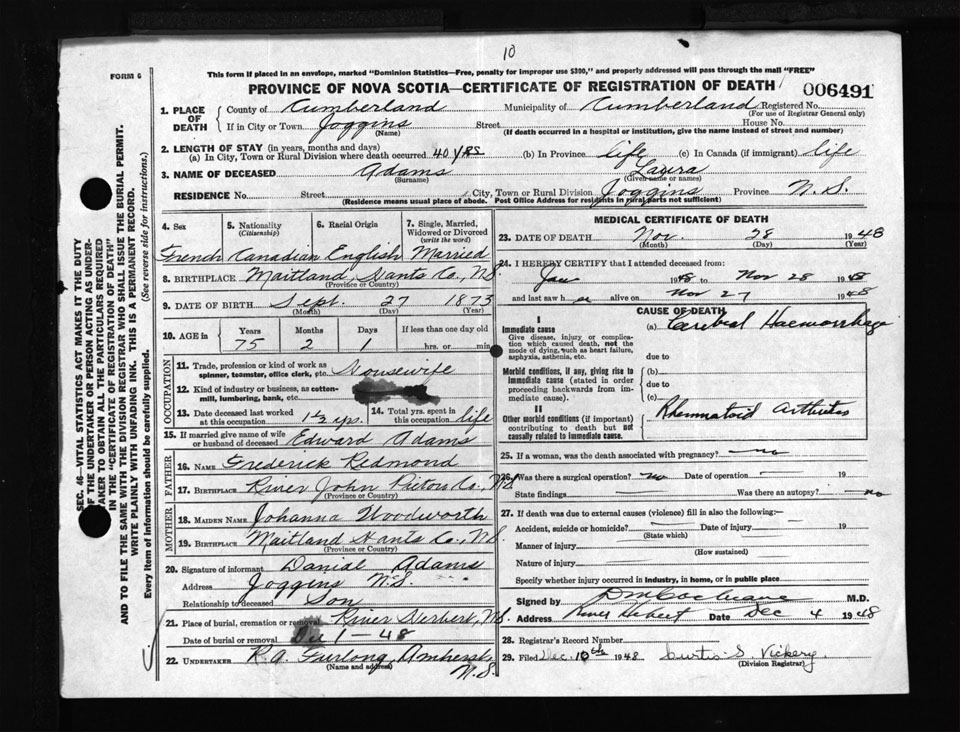 10
FORM 6
This form if placed in an envelope, marked "Dominion Statistics—Free, penalty for improper use $300," and properly addressed will pass through the mail "FREE"
PROVINCE OF NOVA SCOTIA—CERTIFICATE OF REGISTRATION OF DEATH
006491
1. PLACE OF DEATH County of Cumberland Municipality of Cumberland Registered No.
(For use of Registrar General only)
If in City or Town Joggins Street House No.
(Name) (If death occurred in a hospital or institution, give the name instead of street and number)
2. LENGTH OF STAY (in years, months and days)
(a) In City, Town or Rural Division where death occurred 40 yrs (b) In Province life (c) In Canada (if immigrant) life
3. NAME OF DECEASED Adams Laura
(Surname) (Given name or names)
RESIDENCE No. Street City, Town or Rural Division Joggins Province N.S.
(Residence means usual place of abode. Post Office Address for residents in rural parts not sufficient)
SEC. 46—VITAL STATISTICS ACT MAKES IT THE DUTY
OF THE UNDERTAKER OR PERSON ACTING AS UNDER-
TAKER TO OBTAIN ALL THE PARTICULARS REQUIRED
IN THE "CERTIFICATE OF REGISTRATION OF DEATH"
AND TO FILE THE SAME WITH THE DIVISION REGISTRAR WHO SHALL ISSUE THE BURIAL PERMIT.
WRITE PLAINLY WITH UNFADING INK. THIS IS A PERMANENT RECORD.
Every item of information should be carefully supplied. (See reverse side for instructions.)
4. Sex 5. Nationality (Citizenship) 6. Racial Origin 7. Single, Married, Widowed or Divorced (write the word)
French Canadian English Married
8. BIRTHPLACE Maitland, Hants Co., N.S.
(Province or Country)
9. DATE OF BIRTH Sept. 27 1873
(Month) (Day) (Year)
10. AGE in Years Months Days If less than one day old
75 2 1 hrs. or min.
OCCUPATION
11. Trade, profession or kind of work as spinner, teamster, office clerk, etc. Housewife
12. Kind of industry or business, as cotton-mill, lumbering, bank, etc.
13. Date deceased last worked at this occupation 1 1/2 yrs. 14. Total yrs. spent in this occupation life
15. If married give name of wife or husband of deceased Edward Adams
FATHER
16. NAME Frederick Redmond
17. BIRTHPLACE River John Pictou Co., N.S.
(Province or Country)
MOTHER
18. MAIDEN NAME Johanna Woodworth
19. BIRTHPLACE Maitland Hants Co., N.S.
(Province or Country)
20. Signature of informant Danial Adams
Address Joggins N.S.
Relationship to deceased Son
21. Place of burial, cremation or removal River Herbert, N.S.
Date of burial or removal Dec 1 — 48
22. UNDERTAKER R.A. Furlong, Amherst, N.S.
(Name and address)
MEDICAL CERTIFICATE OF DEATH
23. DATE OF DEATH Nov. 28 1948
(Month) (Day) (Year)
24. I HEREBY CERTIFY that I attended deceased from:
Jan 1948 to Nov 28 1948
and last saw her alive on Nov 27 1948
CAUSE OF DEATH
I
Immediate cause (a) Cerebral Haemorrhage
Give disease, injury or complication which caused death, not the mode of dying, such as heart failure, asphyxia, asthenia, etc.
due to
Morbid conditions, if any, giving rise to immediate cause (stated in order proceeding backwards from immediate cause). (b)
due to
(c)
II
Other morbid conditions (if important) contributing to death but not causally related to immediate cause. Rheumatoid Arthritis
25. If a woman, was the death associated with pregnancy? — no
26. Was there a surgical operation? no Date of operation 19
State findings Was there an autopsy? — no
27. If death was due to external causes (violence) fill in also the following:—
Accident, suicide or homicide? Date of injury 19
(State which)
Manner of injury
(How sustained)
Nature of injury
Specify whether injury occurred in industry, in home, or in public place
Signed by D M Cochrane M.D.
Address River Herbert Date Dec 4 1948
28. Registrar's Record Number
29. Filed Dec. 10th 1948 Curtis S. Vickery
(Division Registrar)